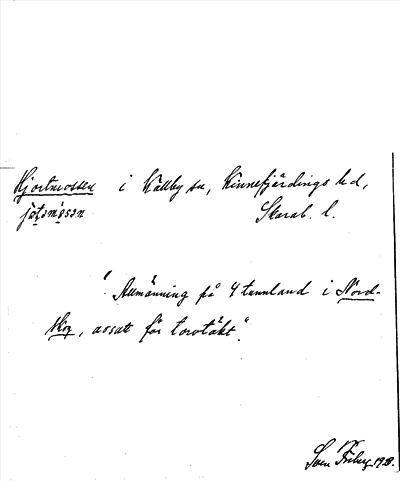 Hjortmossen i Källby sn, Kinnefjärdings hd,
jo̤tǝmǝsǝn Skarab. l.
"Allmänning på 4 tunnland i Nord-
skog, avsatt för torvtäkt".
Sven Friberg 1928.